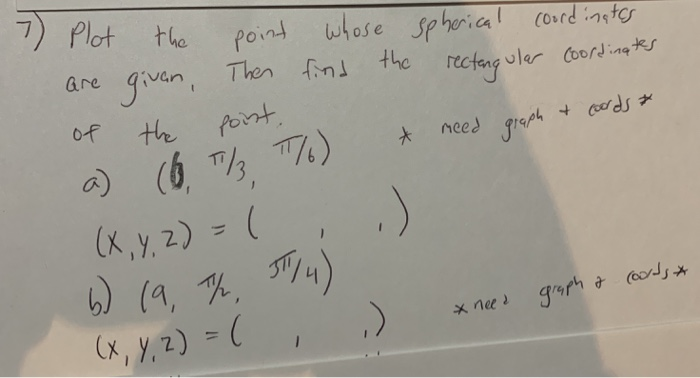 7) Plot the point whose spherical coordinates
are given. Then find the rectangular coordinates
of the point. * need graph + coords *
a) (6, π/3, π/6)
(x, y, z) = ( , , )
b) (9, π/2, 3π/4)
(x, y, z) = ( , , ) * need graph & coords *